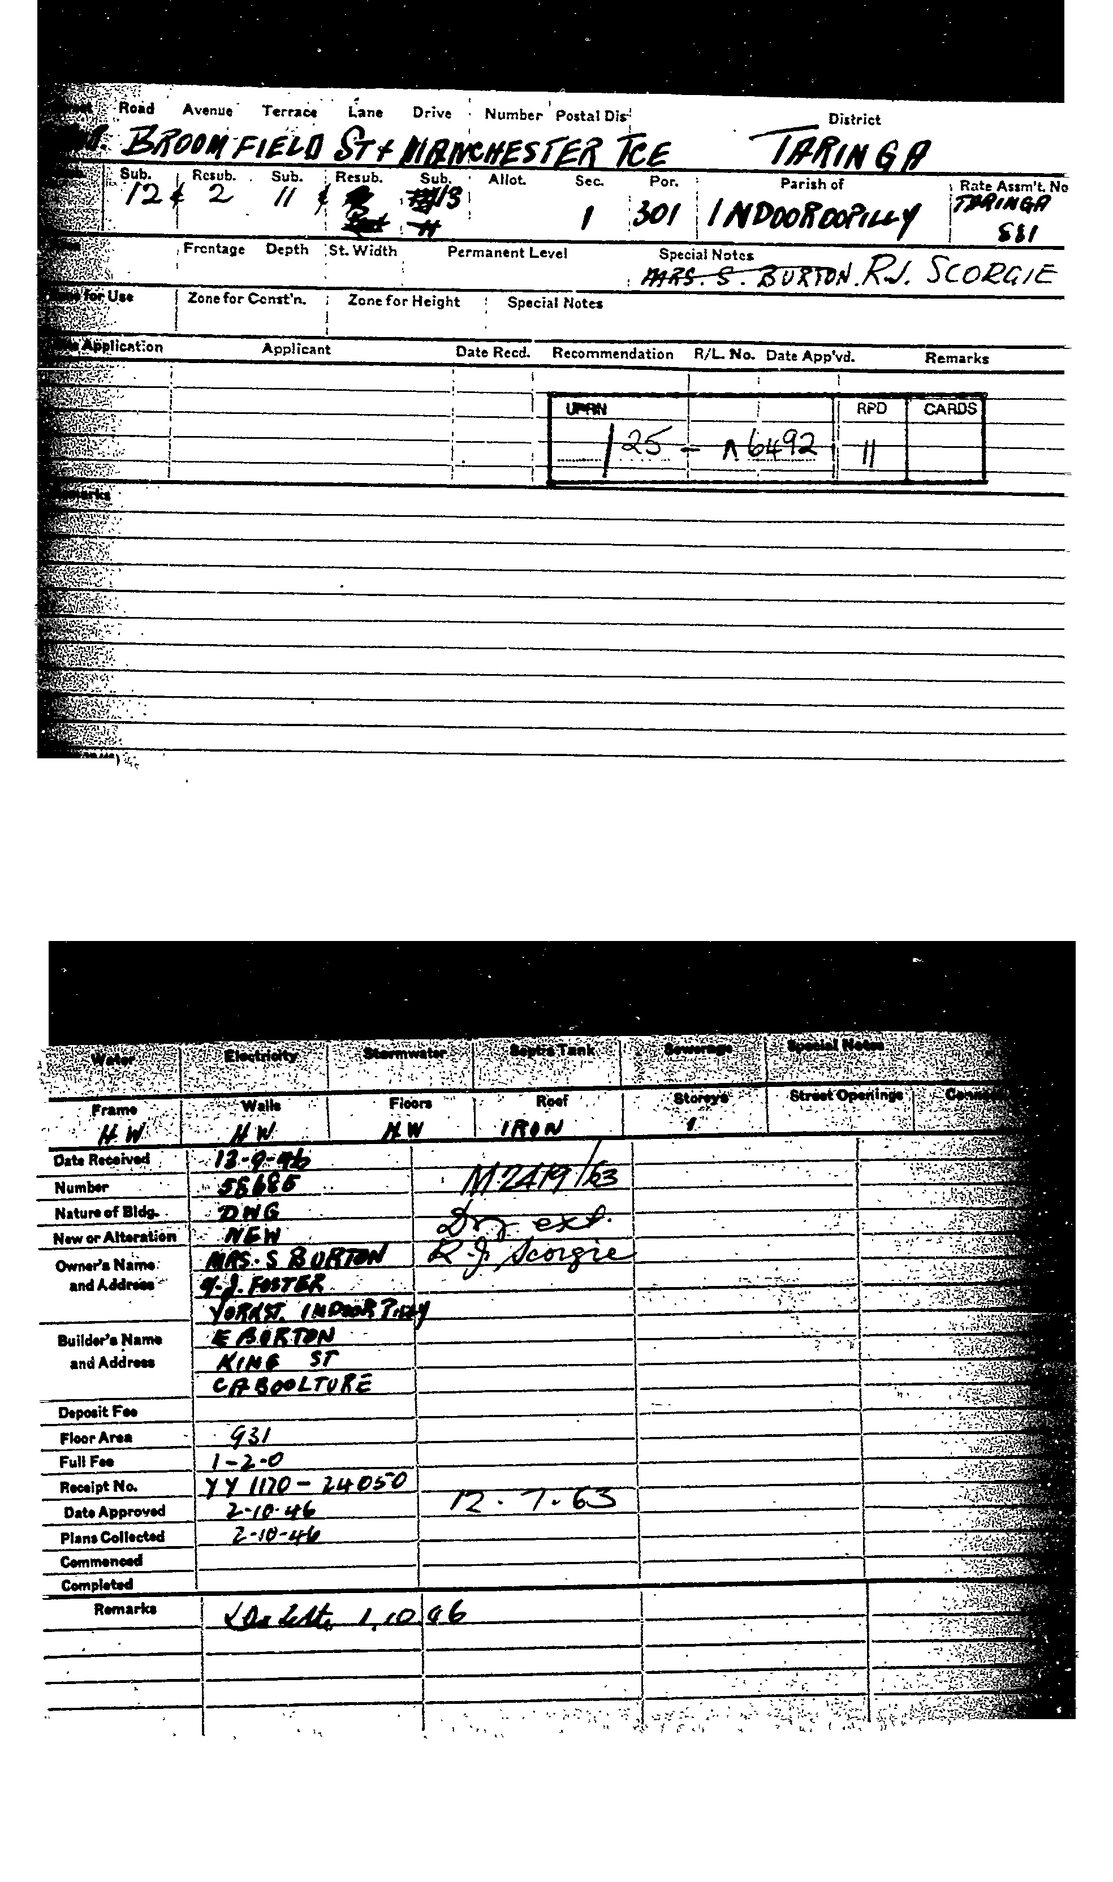 Road Avenue Terrace Lane Drive Number Postal Dis District
BROOMFIELD ST & MANCHESTER TCE TARINGA
Sub. Resub. Sub. Resub. Sub. Allot. Sec. Por. Parish of Rate Assm't. No
12 & 2 11 & 13 1 301 INDOOROOPILLY TARINGA
881
Frontage Depth St. Width Permanent Level Special Notes
MRS. S. BURTON. R.J. SCORGIE
for Use Zone for Const'n. Zone for Height Special Notes
Application Applicant Date Recd. Recommendation R/L. No. Date App'vd. Remarks
UPRN RPD CARDS
25 - 6492 11
Remarks
Water Electricity Stormwater Septic Tank Sewerage Special Notes
Frame Walls Floors Roof Storeys Street Openings
H.W H.W H.W IRON 1
Date Received 13-9-46
Number 58685 M2419/63
Nature of Bldg. DWG
New or Alteration NEW ext.
Owner's Name MRS. S BURTON R.J. Scorgie
and Address FOSTER
YORK ST. INDOORPILLY
Builder's Name E BURTON
and Address KING ST
CABOOLTURE
Deposit Fee
Floor Area 931
Full Fee 1-2-0
Receipt No. YY 1170 - 24050
Date Approved 2-10-46 12.7.63
Plans Collected 2-10-46
Commenced
Completed
Remarks 1.10.46